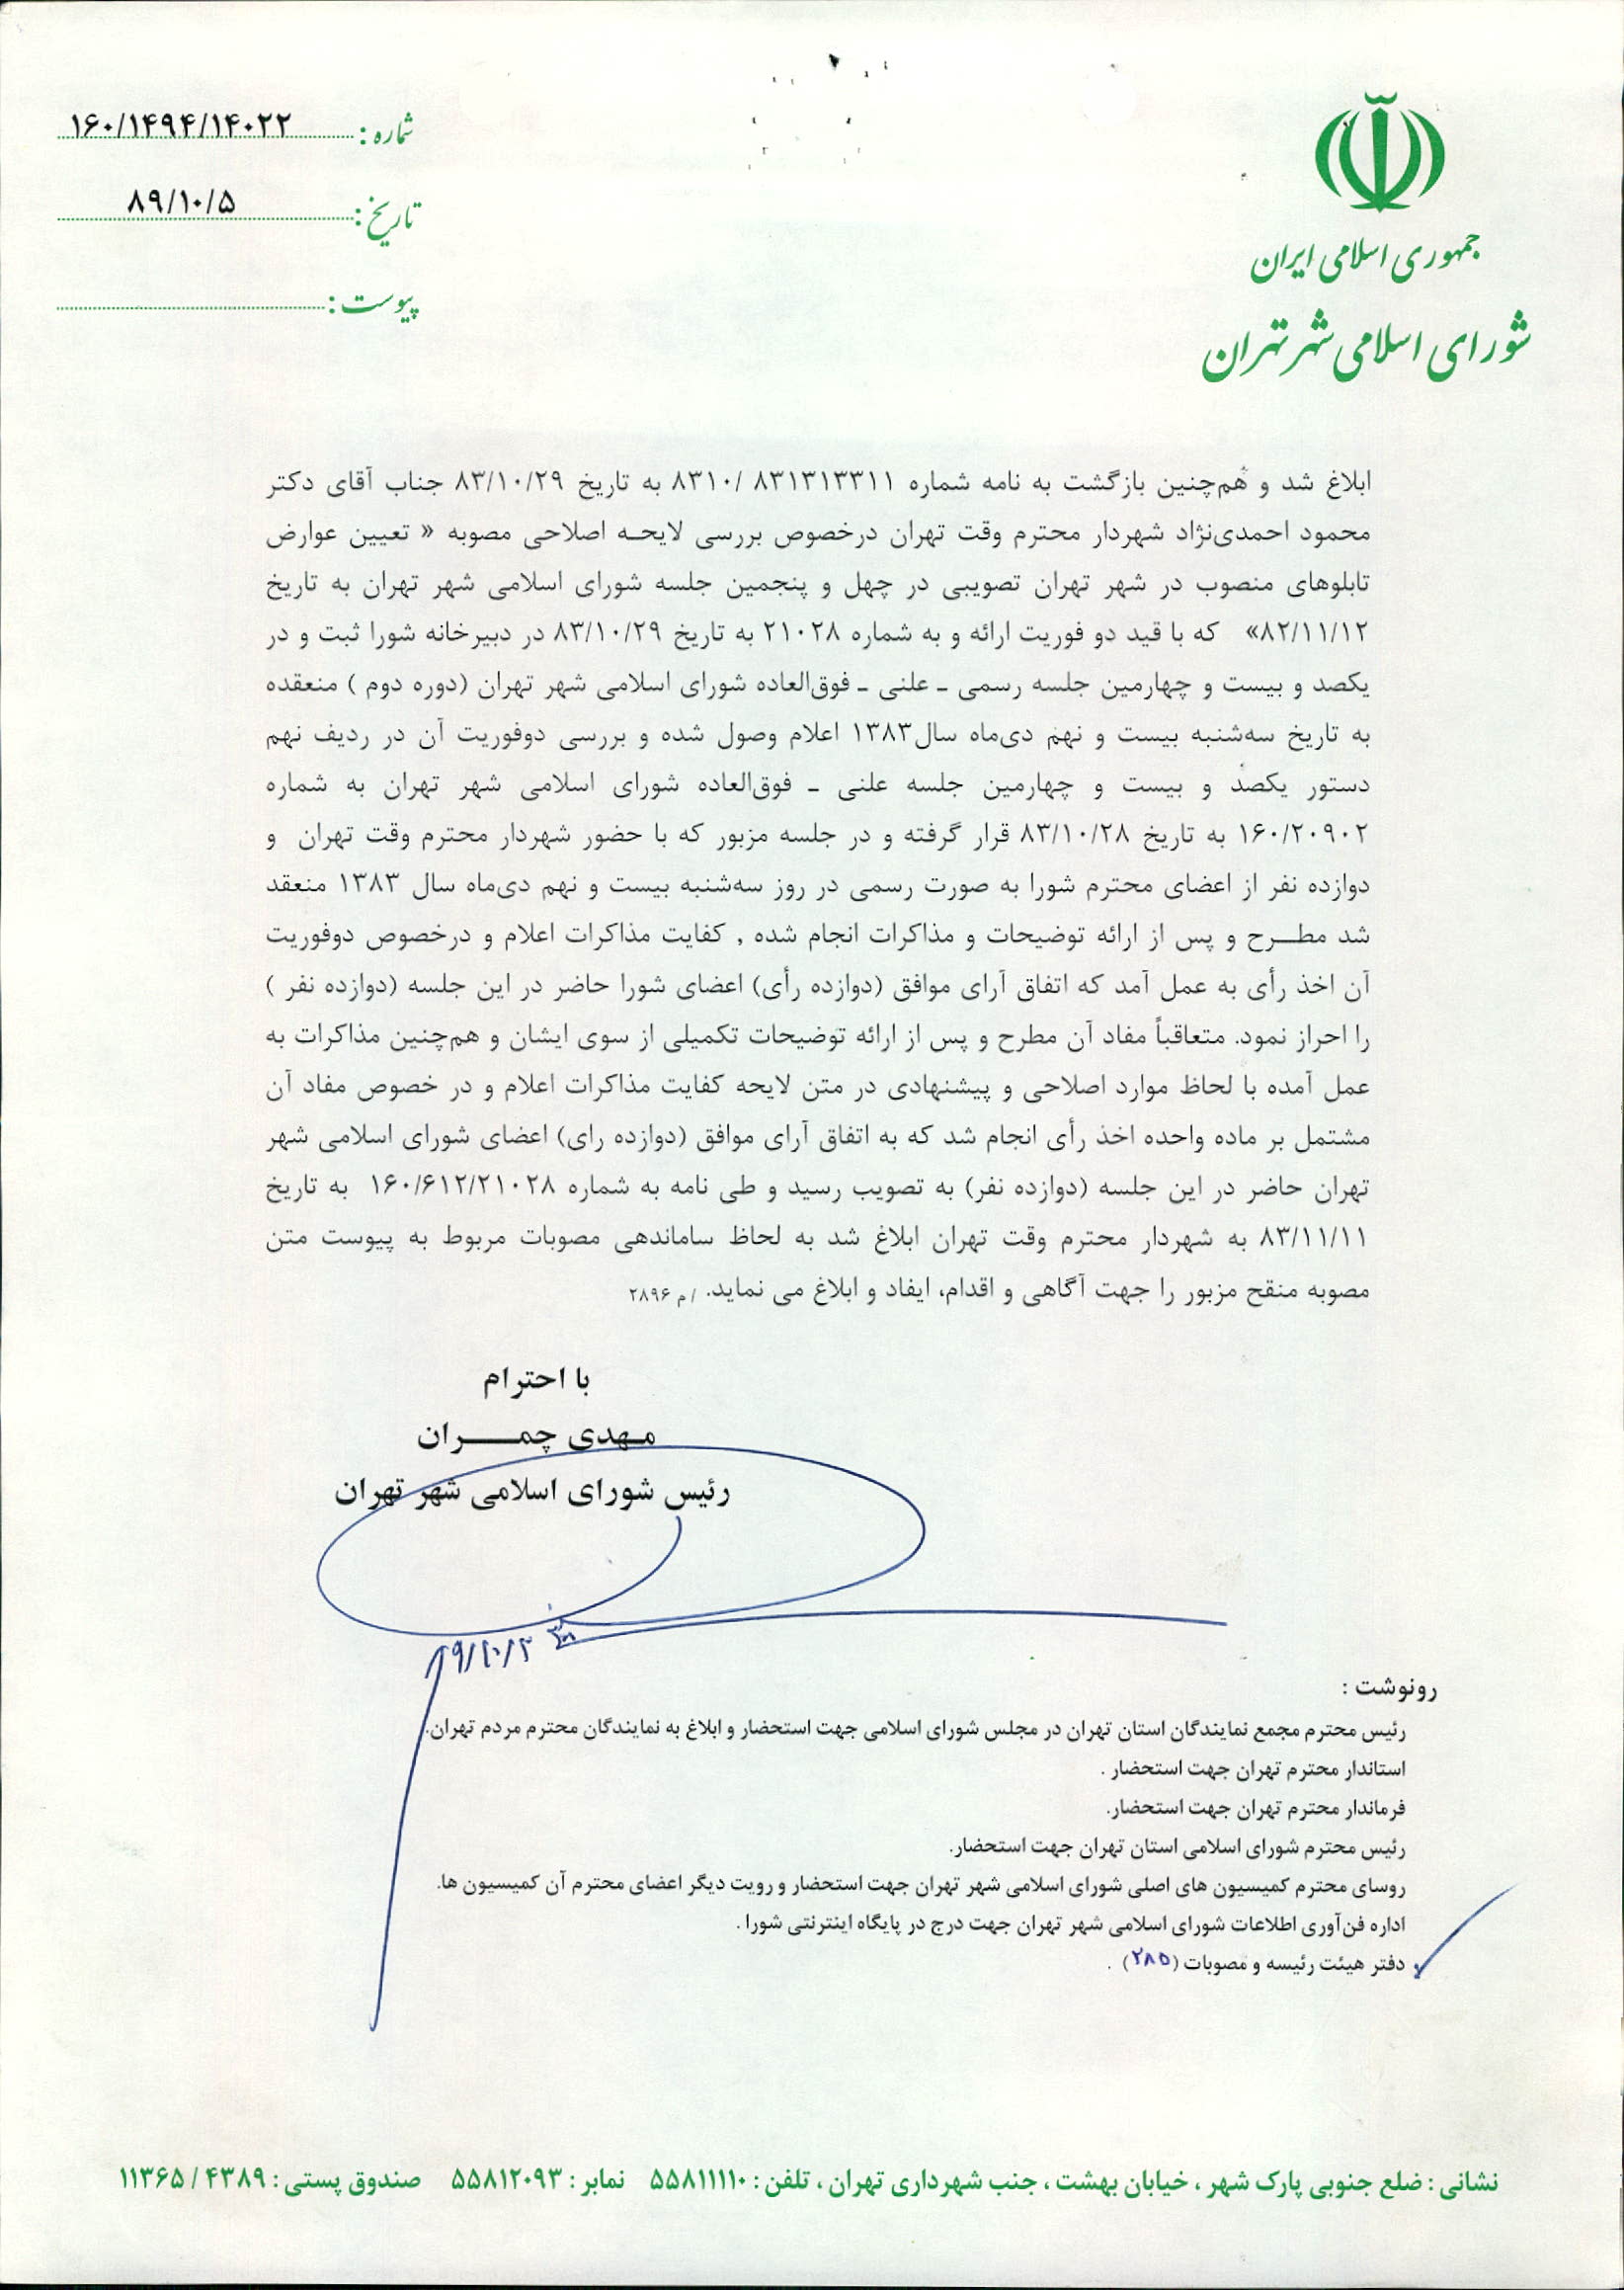 جمهوری اسلامی ایران
شورای اسلامی شهر تهران
شماره : ۱۶۰/۱۴۹۴/۱۴۰۲۲
تاریخ : ۸۹/۱۰/۵
پیوست :
ابلاغ شد و هم‌چنین بازگشت به نامه شماره ۸۳۱۳۱۳۳۱۱ /۸۳۱۰ به تاریخ ۸۳/۱۰/۲۹ جناب آقای دکتر
محمود احمدی‌نژاد شهردار محترم وقت تهران درخصوص بررسی لایحـه اصلاحی مصوبه « تعیین عوارض
تابلوهای منصوب در شهر تهران تصویبی در چهل و پنجمین جلسه شورای اسلامی شهر تهران به تاریخ
۸۲/۱۱/۱۲» که با قید دو فوریت ارائه و به شماره ۲۱۰۲۸ به تاریخ ۸۳/۱۰/۲۹ در دبیرخانه شورا ثبت و در
یکصد و بیست و چهارمین جلسه رسمی ـ علنی ـ فوق‌العاده شورای اسلامی شهر تهران (دوره دوم ) منعقده
به تاریخ سه‌شنبه بیست و نهم دی‌ماه سال۱۳۸۳ اعلام وصول شده و بررسی دوفوریت آن در ردیف نهم
دستور یکصد و بیست و چهارمین جلسه علنی ـ فوق‌العاده شورای اسلامی شهر تهران به شماره
۱۶۰/۲۰۹۰۲ به تاریخ ۸۳/۱۰/۲۸ قرار گرفته و در جلسه مزبور که با حضور شهردار محترم وقت تهران و
دوازده نفر از اعضای محترم شورا به صورت رسمی در روز سه‌شنبه بیست و نهم دی‌ماه سال ۱۳۸۳ منعقد
شد مطـــرح و پس از ارائه توضیحات و مذاکرات انجام شده , کفایت مذاکرات اعلام و درخصوص دوفوریت
آن اخذ رأی به عمل آمد که اتفاق آرای موافق (دوازده رأی) اعضای شورا حاضر در این جلسه (دوازده نفر )
را احراز نمود. متعاقباً مفاد آن مطرح و پس از ارائه توضیحات تکمیلی از سوی ایشان و هم‌چنین مذاکرات به
عمل آمده با لحاظ موارد اصلاحی و پیشنهادی در متن لایحه کفایت مذاکرات اعلام و در خصوص مفاد آن
مشتمل بر ماده واحده اخذ رأی انجام شد که به اتفاق آرای موافق (دوازده رای) اعضای شورای اسلامی شهر
تهران حاضر در این جلسه (دوازده نفر) به تصویب رسید و طی نامه به شماره ۱۶۰/۶۱۲/۲۱۰۲۸ به تاریخ
۸۳/۱۱/۱۱ به شهردار محترم وقت تهران ابلاغ شد به لحاظ ساماندهی مصوبات مربوط به پیوست متن
مصوبه منقح مزبور را جهت آگاهی و اقدام، ایفاد و ابلاغ می نماید. / م ۲۸۹۶
با احترام
مـهدی چمـــــران
رئیس شورای اسلامی شهر تهران
رونوشت :
رئیس محترم مجمع نمایندگان استان تهران در مجلس شورای اسلامی جهت استحضار و ابلاغ به نمایندگان محترم مردم تهران.
استاندار محترم تهران جهت استحضار .
فرماندار محترم تهران جهت استحضار.
رئیس محترم شورای اسلامی استان تهران جهت استحضار.
روسای محترم کمیسیون های اصلی شورای اسلامی شهر تهران جهت استحضار و رویت دیگر اعضای محترم آن کمیسیون ها.
اداره فن‌آوری اطلاعات شورای اسلامی شهر تهران جهت درج در پایگاه اینترنتی شورا .
دفتر هیئت رئیسه و مصوبات (۲۸۵) .
نشانی : ضلع جنوبی پارک شهر ، خیابان بهشت ، جنب شهرداری تهران ، تلفن : ۵۵۸۱۱۱۱۰ نمابر : ۵۵۸۱۲۰۹۳ صندوق پستی : ۴۳۸۹ / ۱۱۳۶۵